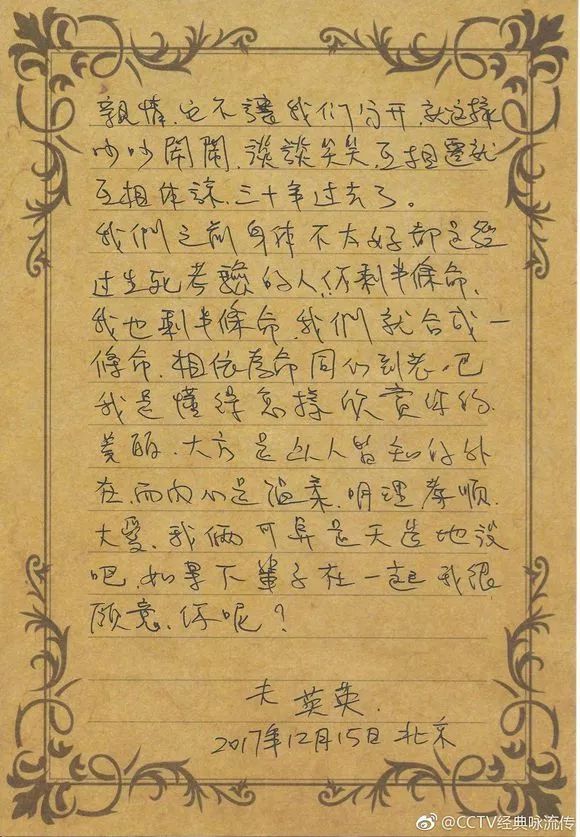 親情,它不讓我们分开,就这樣
吵吵鬧鬧,談談笑笑,互相遷就
互相体諒,三十年过去了。
我們之前身体不太好都是经
过生死考驗的人,你剩半條命,
我也剩半條命,我們就合成一
條命,相依為命同行到老吧
我是懂得怎樣欣賞你的
美丽、大方是人人皆知的外
在而内心是温柔、明理孝順、
大爱,我俩可算是天造地设
吧,如果下輩子在一起我很
願意,你呢?
夫 英英.
2017年12月15日 北京
@CCTV经典咏流传